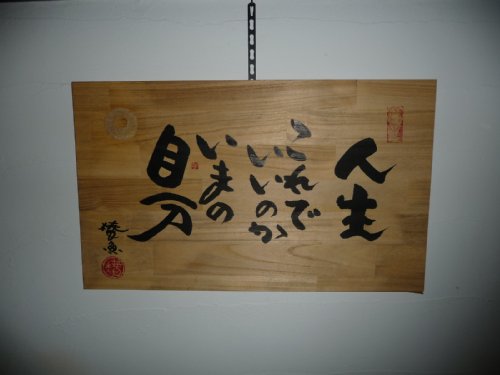 人生
これで
いいのか
いまの
自分